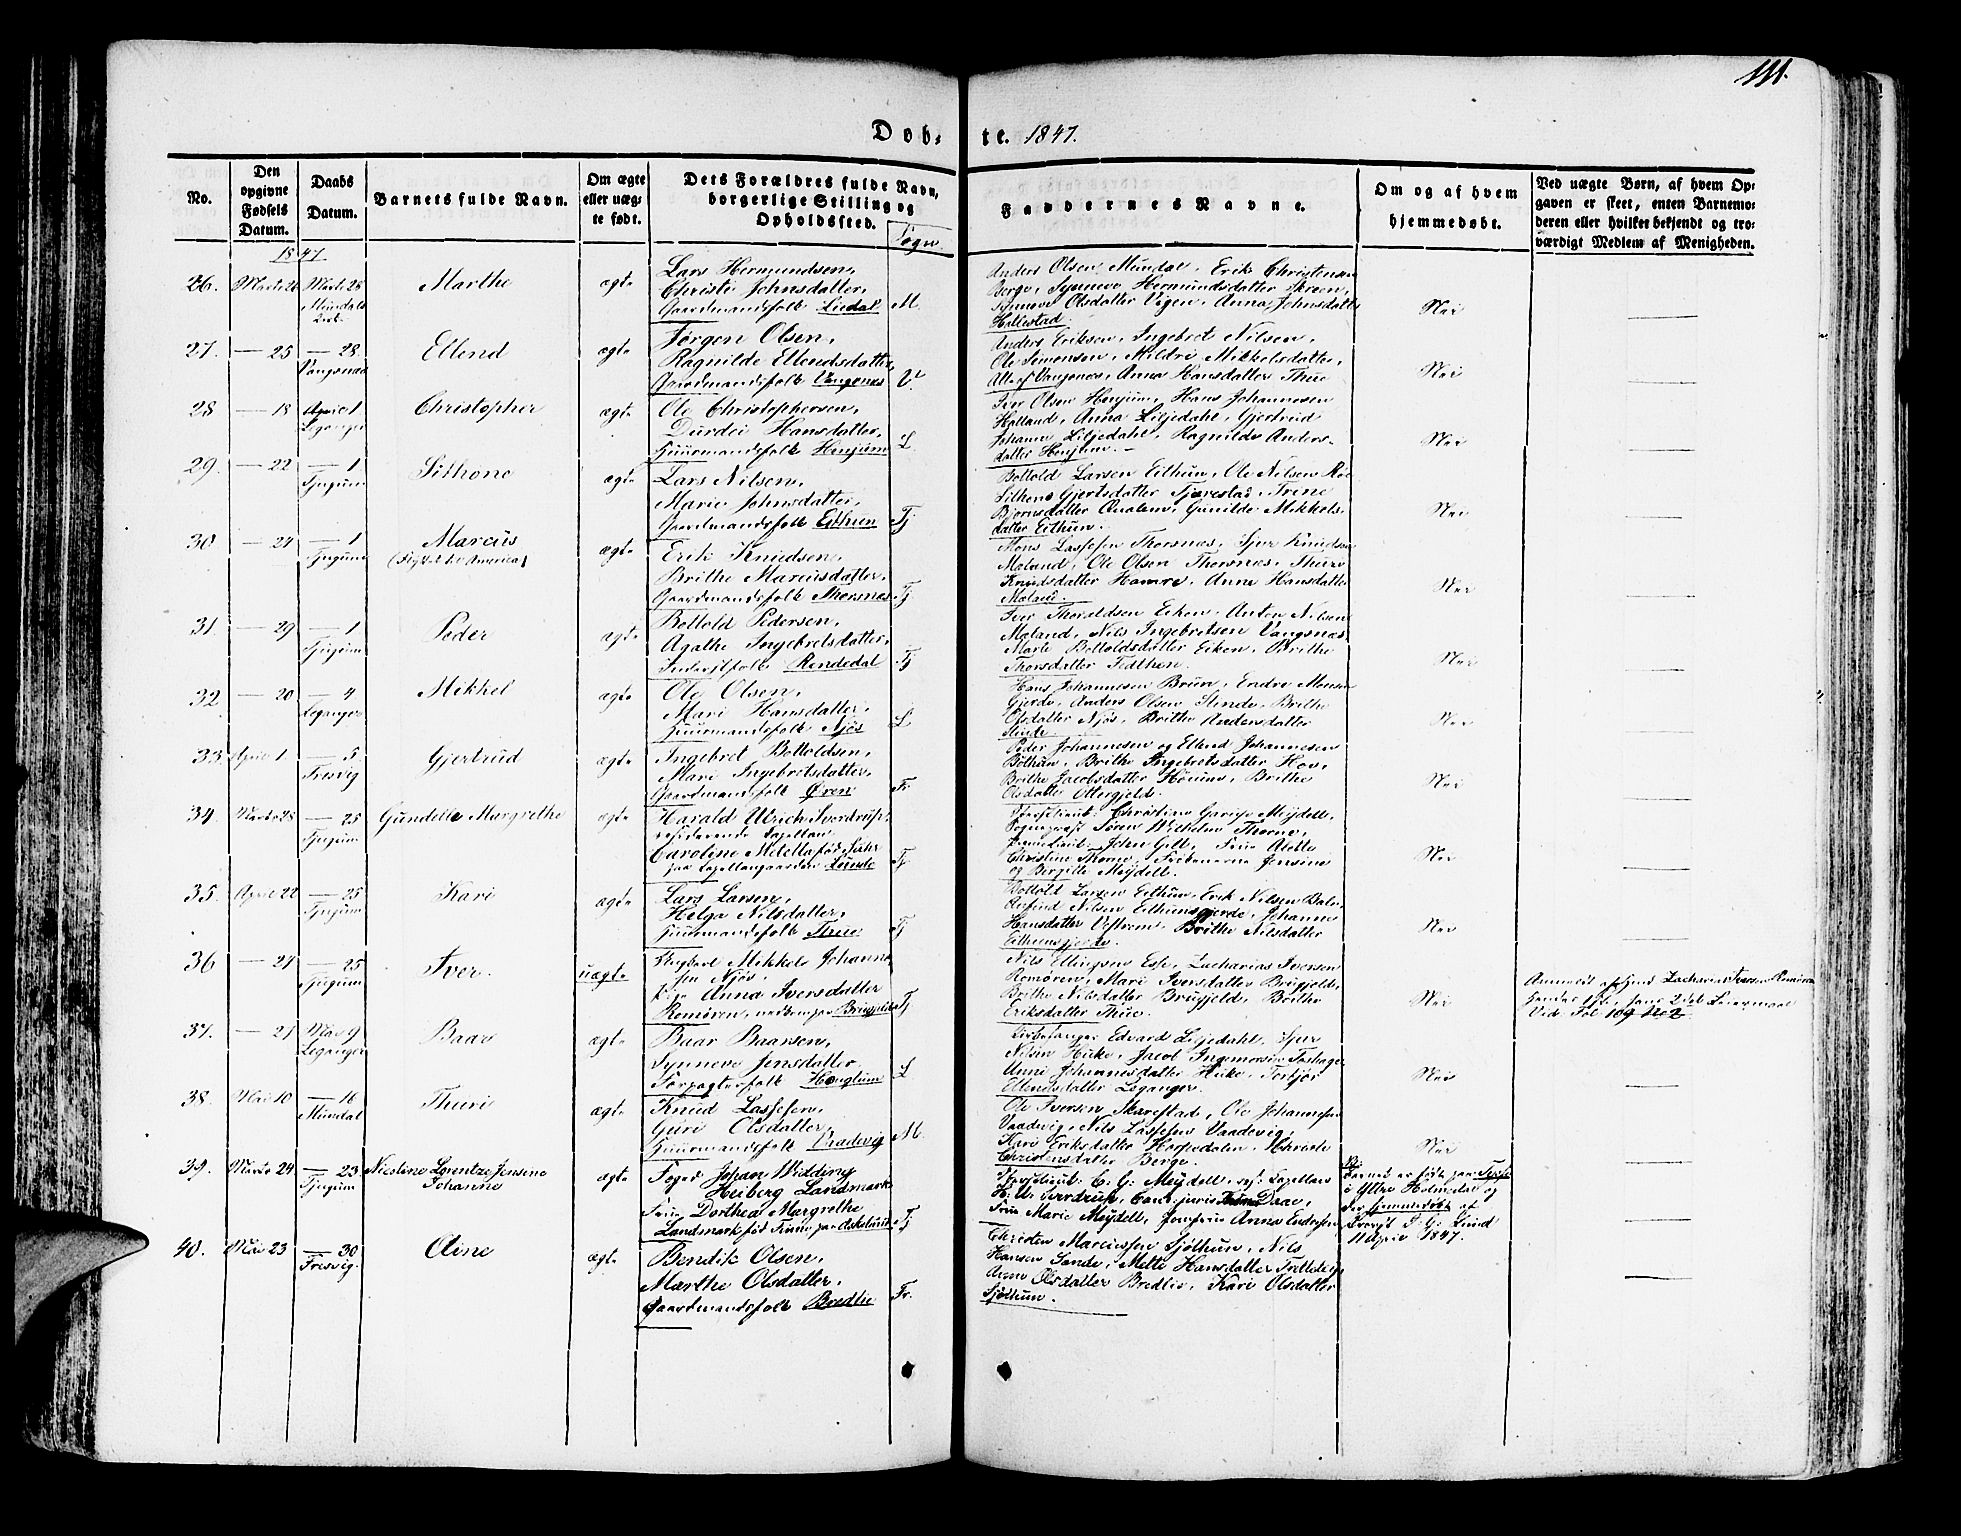 111.
Døb- te. 1847.
No.
Den opgivne Fødsels Datum.
Daabs Datum.
Barnets fulde Navn.
Om ægte eller uægte født.
Dets Forældres fulde Navn, borgerlige Stilling og Opholdssted.
Sogn
Faddernes Navne.
Om og af hvem hjemmedøbt.
Ved uægte Børn, af hvem Opgaven er skeet, enten Barnemoderen eller hvilket bekjendt og troværdigt Medlem af Menigheden.
1847
26. Marts 26 Marts 28 Marthe ægte Lars Hermundsen, Anders Olsen Mundal, Erik Christensen
Mundals Kirk. Christi Johnsdatter, Berge, Synneve Hermundsdatter Skreen,
Gaardmandsfolk Liedal M. Synneve Olsdatter Vigen, Anna Johnsdatter Nei
Hallestad.
27. — 25 — 28 Ellend ægte Jørgen Olsen, Anders Eriksen, Ingebret Nilsen,
Vangsnæs Ragnilde Ellendsdatter, Ole Simonsen, Mildri Mikkelsdatter,
Gaardmandsfolk Vangsnes V. Alle af Vangsnes, Anna Hansdatter Thue Nei
28 — 18 April 1 Christopher ægte Ole Christophersen, Iver Olsen Henjum, Hans Johannesen
Leganger Durdei Hansdatter, Holland, Anna Liljedahl, Gjertrud
Huusmandsfolk Henjum L. Johanne Liljedahl, Ragnilde Anders- Nei
datter Henjum.
29. — 22 — 1 Sithone ægte Lars Nilsen, Bottold Larsen Eithun, Ole Nilsen
Tjugum Marie Johnsdatter, Gjertsdatter Tjærestad, Trine
Gaardmandsfolk Eithun Tj. Bjørnsdatter Qvalen, Gunilde Mikkels- Nei
datter Eithun.
30 — 24 — 1 Marcus ægte Erik Knudsen, Mons Lassesen Thorsnæs, Sjur Knudsen
Tjugum (Flyttet til America) Brithe Marcusdatter, Meland, Ole Olsen Thorsnæs, Thuri
Gaardmandsfolk Thorsnæs Tj Knudsdatter Hamre, Anna Hansdatter Nei
Meland.
31. — 29 — 1 Peder ægte Bottold Pedersen, Iver Thoraldsen Eiken, Anton Nilsen
Tjugum Agathe Ingebretsdatter, Meland, Nils Ingebretsen Vangsnæs,
Inderstfolk Rendedal Tj Marte Bottoldsdatter Eiken, Brithe Nei
Thorsdatter Fedthen.
32 — 20 — 4 Mikkel ægte Ole Olsen, Hans Johannesen Brun, Endre Monsen
Leganger Mari Hansdatter, Gjerde, Anders Olsen Slinde, Brithe
Huusmandsfolk Njøs L Olsdatter Njøs, Brithe Andersdatter Nei
Slinde.
33. April 1 — 5. Gjertrud ægte Ingebret Bottoldsen, Peder Johannesen og Ellend Johannesen
Fresvig Mari Ingebretsdatter, Bøthun, Brithe Ingebretsdatter Hov,
Gaardmandsfolk Øren Fr. Brithe Jacobsdatter, Brithe Nei
Olsdatter Ottergjeld.
34. Marts 28 — 25 Gundelle Margrethe ægte Harald Ulrich Sverdrup, Christine Meydell,
Tjugum residerende Capellan Sogneprest Søren Wilhelm Thorne,
Caroline Metella født Premieliut. John Gill, Frue Alette
paa Capellangaarden Lunde Tj Christine Thorne, Jensine Nei
og Bergitte Meydell.
35. April 22 — 25 Kari ægte Lars Larsen, Bottold Larsen Eithun, Erik Nilsen Bale,
Tjugum Helga Nilsdatter, Nilsen Eithunsgjerde, Johanne
Huusmandsfolk Thue Tj Hansdatter Vestrem, Brithe Nilsdatter Nei
Eithunsgjerde.
36 — 24 — 25 Iver. uægte Ungkarl Mikkel Johanne- Nils Ellingsen Esse, Zacharias Iversen
Tjugum sen Njøs Romøren, Mari Iversdatter Brigjeld, Anmeldt af Zacharias Iversen Romøren
Pige Anna Iversdatter Brithe Nilsdatter Brugjeld, Brithe Nei hendes 1ste, hans 2det Leiermaal
Romøren, Tj Eriksdatter Thue. Vid. Fol. 109 No 2.
37. — 21 Mai 9 Baar ægte Baar Baarsen, Kirkesanger Edvard Liljedahl, Sjur
Leganger Synneve Jensdatter, Nilsen Huke, Jacob Ingemorsen
Forpagterfolk L Anni Johannesdatter Huke, Nei
Ellendsdatter Leganger.
38. Mai 10 — 16 Thuri ægte Knud Lassesen, Ole Iversen Skarestad, Ole Johannesen
Mundal Guri Olsdatter, Vaadevig, Nils Lassesen Vaadevig,
Huusmandsfolk Vaadevig M. Kari Eriksdatter, Christi Nei
Christensdatter Berge.
39. Marts 24 — 23 Nicoline Lorentze Jensine ægte Foged Johan Widding C. G. Meydell, res. Capellan NB:
Tjugum Johanne Heiberg Landmark H. U. Sverdrup, Cand. juris Daae, Barnet er født paa
Frue Dorthea Margrethe Frue Marie Meydell, Jomfru Anna i Yttre Holmedal og
Landmark født paa Tj der hjemmedøbt af
Provst P. G. Lund
11 April 1847.
40. Mai 23 — 30 Oline ægte Bendik Olsen, Christen Marcussen Sjøthun, Nils
Fresvig Marthe Olsdatter, Hansen Sande, Mette Hansdatter
Gaardmandsfolk Bredlie Fr. Anne Olsdatter Bredlie, Kari Olsdatter
Sjøthun.